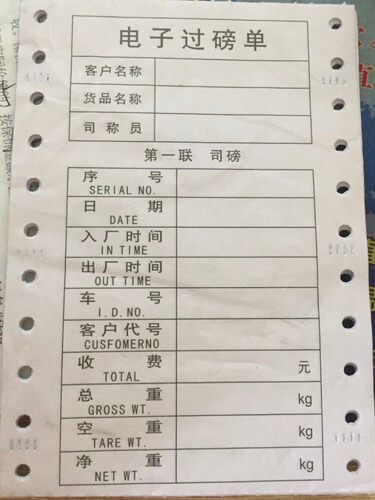 电子过磅单
客户名称
货品名称
司称员
第一联 司磅
序号
SERIAL NO.
日期
DATE
入厂时间
IN TIME
出厂时间
OUT TIME
车号
I.D.NO.
客户代号
CUSFOMERNO
收费 元
TOTAL
总重 kg
GROSS WT.
空重 kg
TARE WT.
净重 kg
NET WT.
值